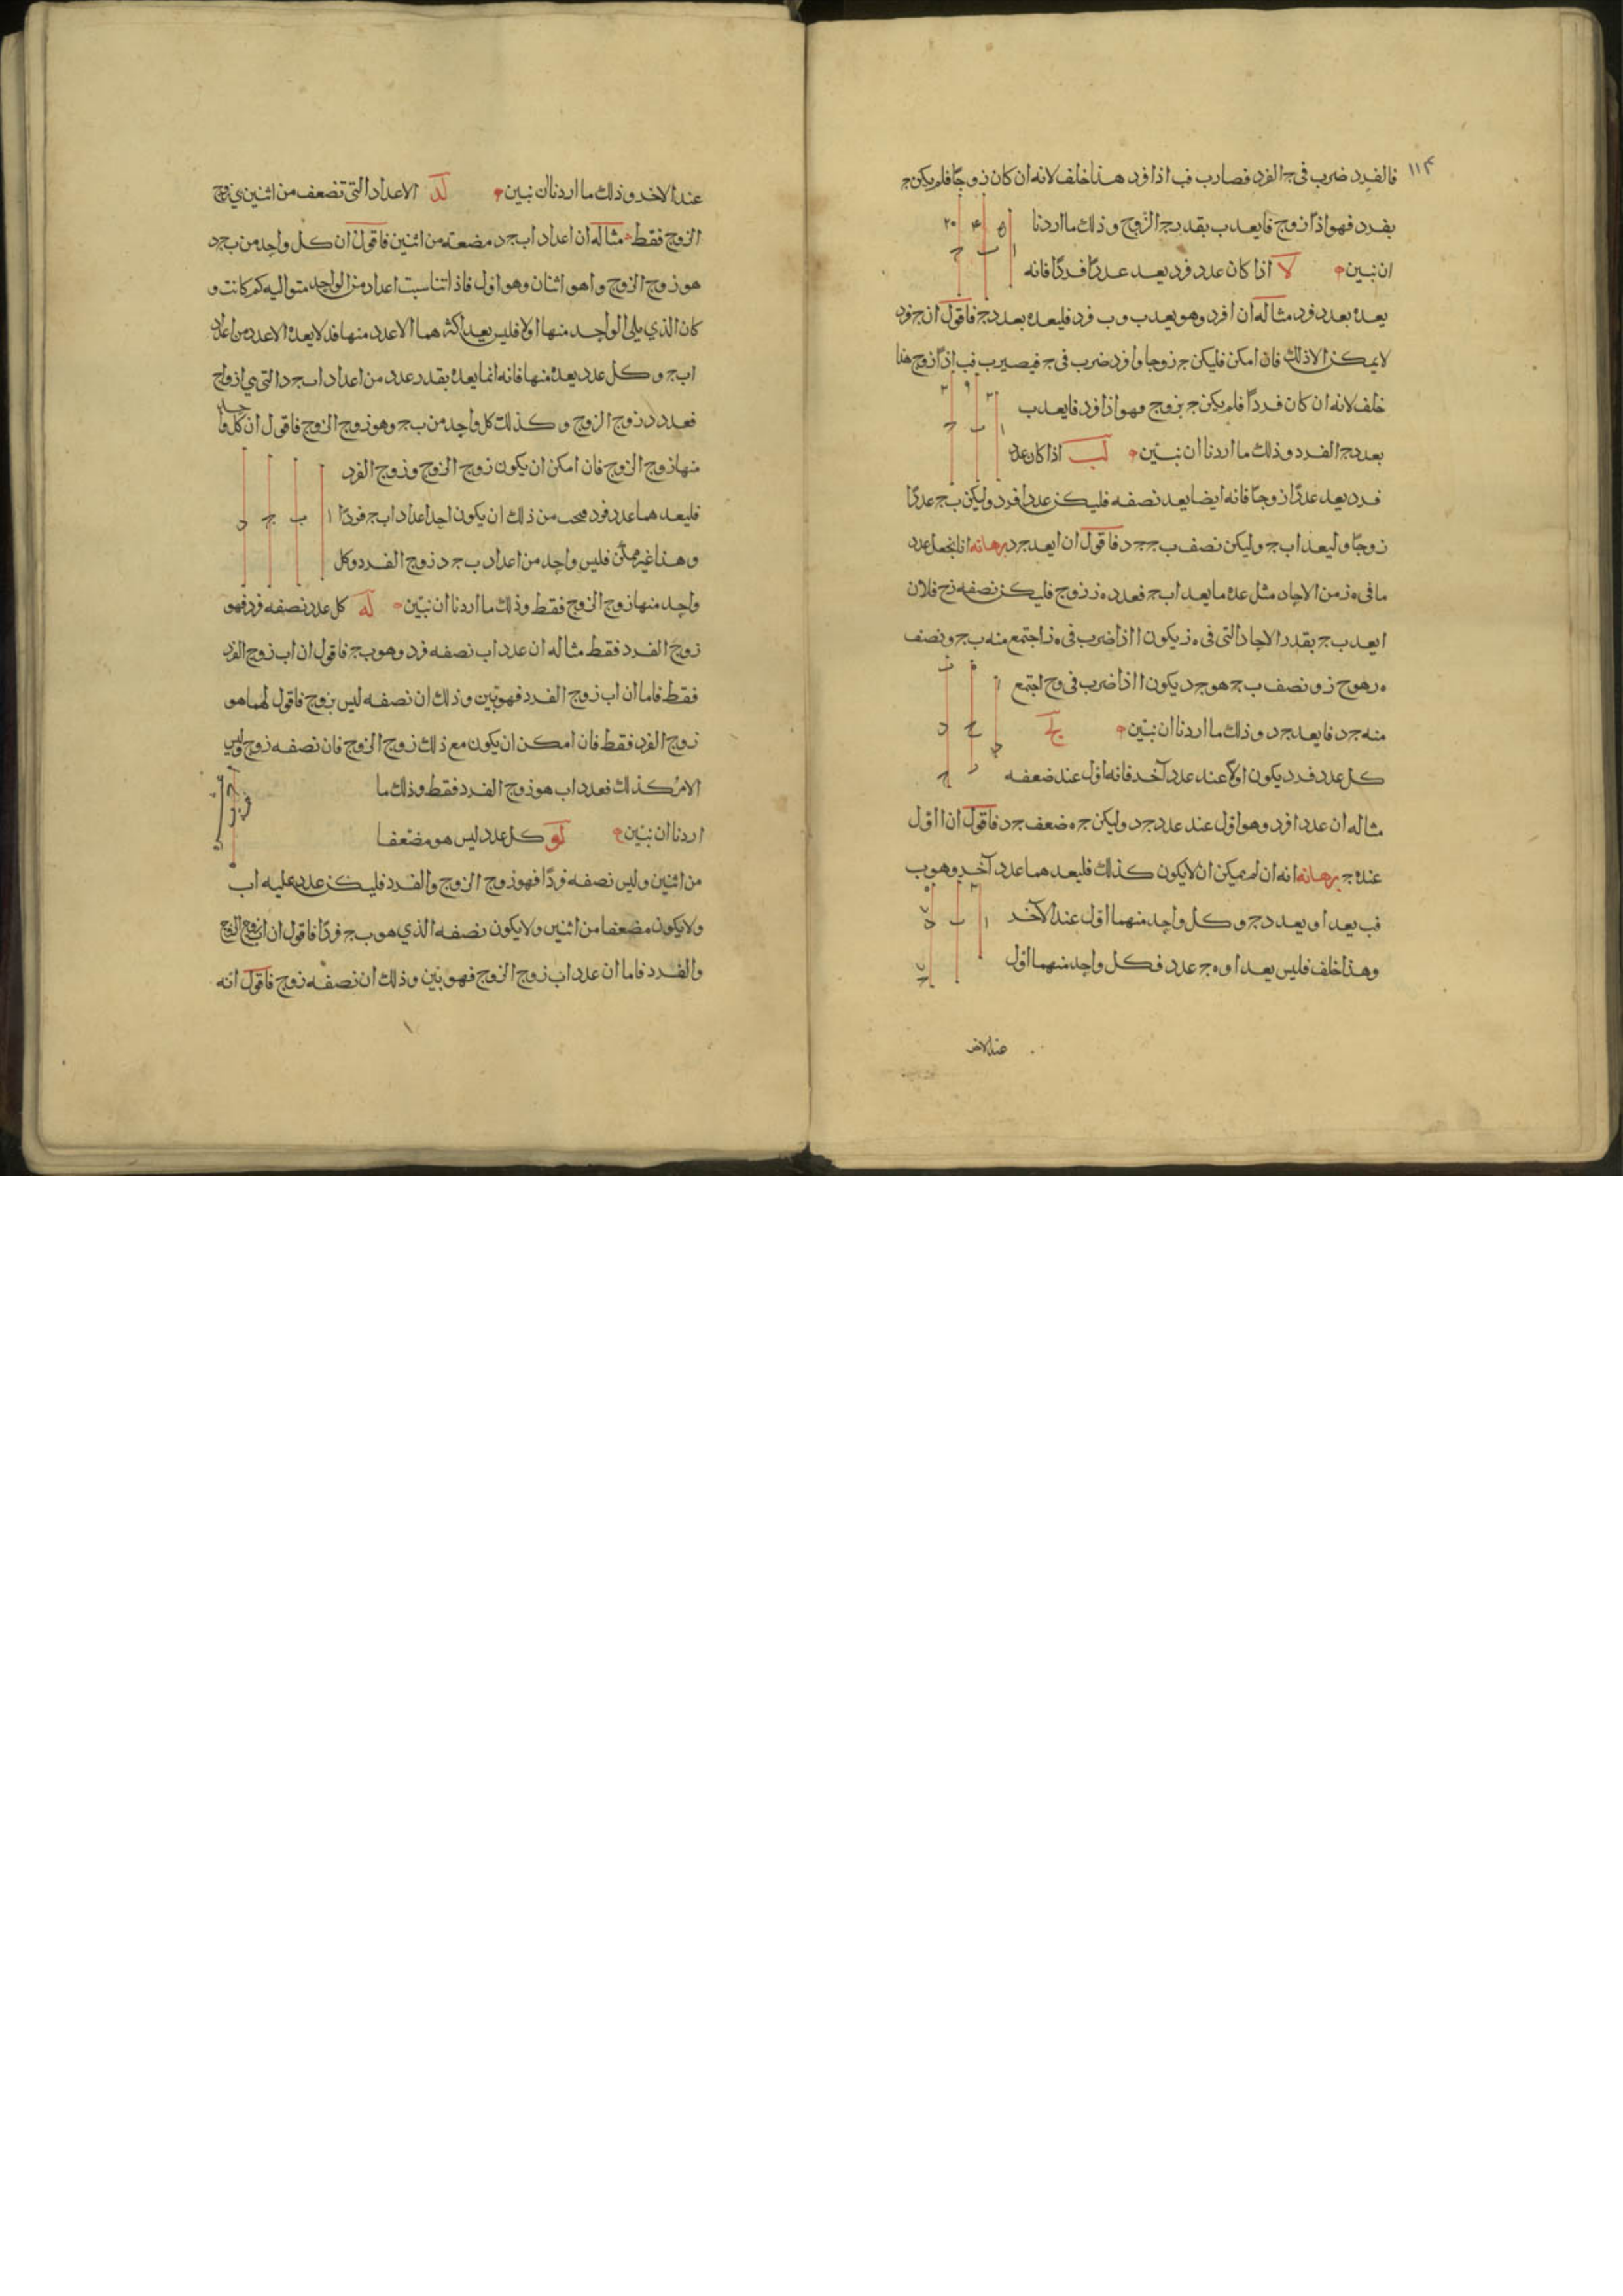 ١١٤
فالفرد ضرب في ج الفرد فصار ب فب اذا فرد هذا خلف لانه ان كان زوجًا فلم يكن ج
بفرد فهو اذًا زوج فا يعد ب بقدر ج الزوج وذلك ما اردنا
ان نبين لا اذا كان عدد فرد يعد عددًا فردًا فانه
يعده بعدد فرد مثاله ان ا فرد وهو يعد ب وب فرد فليعده بعدد ج فاقول ان ج فرد
لا يمكن الا ذلك فان امكن فليكن ج زوجا وا فرد ضرب في ج فيصير ب فب اذًا زوج هذا
خلف لانه ان كان فردًا فلم يكن ج بزوج فهو اذا فرد فا يعد ب
بعدد ج الفرد وذلك ما اردنا ان نبيّن لب اذا كان عدد
فرد يعد عددًا زوجًا فانه ايضا يعد نصفه فليكن عدد ا فرد وليكن ب ج عددًا
زوجًا وليعد ا ب ج وليكن نصف ب ج ج د فاقول ان ا يعد ج د برهانه انا نجعل عدد
ما في ه ز من الاحاد مثل عدة ما يعد ا ب ج فعدد ه ز زوج فليكن نصفه ز ح فلان
ا يعد ب ج بقدر الاحاد التي في ه ز يكون ا اذا ضرب في ه ز اجتمع منه ب ج ونصف
ه ز هو ح ز ونصف ب ج هو ج د يكون ا اذا ضرب في ز ح اجتمع
منه ج د فا يعد ج د وذلك ما اردنا ان نبيّن لج
كل عدد فرد يكون اولًا عند عدد آخر فانه اول عند ضعفه
مثاله ان عدد ا فرد وهو اول عند عدد ج د وليكن ج ه ضعف ج د فاقول ان ا اول
عند ه ج برهانه انه ان لم يمكن ان لا يكون كذلك فليعدهما عدد آخر وهو ب
فب يعد ا ويعد د ج وكل واحد منهما اول عند الآخر
وهذا خلف فليس يعد ا وه ج عدد فكل واحد منهما اول
عند الاخر
عند الاخر وذلك ما اردنا ان نبين لد الاعداد التي تضعف من اثنين هي زوج
الزوج فقط مثاله ان اعداد ا ب ج د مضعفة من اثنين فاقول ان كل واحد من ب ج د
هو زوج الزوج وا هو اثنان وهو اول فاذا تناسبت اعداد من الواحد متواليه كم كانت و
كان الذي يلي الواحد منها اولا فليس يعد اكثرهما الا عدد منها فد لا يعده الا عدد من اعداد
ا ب ج وكل عدد يعده منها فانه انما يعده بقدر عدد من اعداد ا ب ج د التي هي ازواج
فعدد د زوج الزوج وكذلك كل واحد من ب ج وهو زوج الزوج فاقول ان كل واحد
منها زوج الزوج فان امكن ان يكون زوج الزوج وزوج الفرد
فليعدهما عدد فرد فيجب من ذلك ان يكون احد اعداد ا ب ج فردًا
وهذا غير ممكن فليس واحد من اعداد ب ج د زوج الفرد وكل
واحد منها زوج الزوج فقط وذلك ما اردنا ان نبيّن له كل عدد نصفه فرد فهو
زوج الفرد فقط مثاله ان عدد ا ب نصفه فرد وهو ب ج فاقول ان ا ب زوج الفرد
فقط فاما ان ا ب زوج الفرد فهو بيّن وذلك ان نصفه ليس بزوج فاقول انما هو
زوج الفرد فقط فان امكن ان يكون مع ذلك زوج الزوج فان نصفه زوج وليس
الامر كذلك فعدد ا ب هو زوج الفرد فقط وذلك ما
اردنا ان نبيّن لو كل عدد ليس هو مضعفا
من اثنين وليس نصفه فردًا فهو زوج الزوج والفرد فليكن عدد عليه ا ب
ولا يكون مضعفا من اثنين ولا يكون نصفه الذي هو ب ج فردًا فاقول ان ا ب زوج الزوج
والفرد فاما ان عدد ا ب زوج الزوج فهو بيّن وذلك ان نصفه زوج فاقول انه